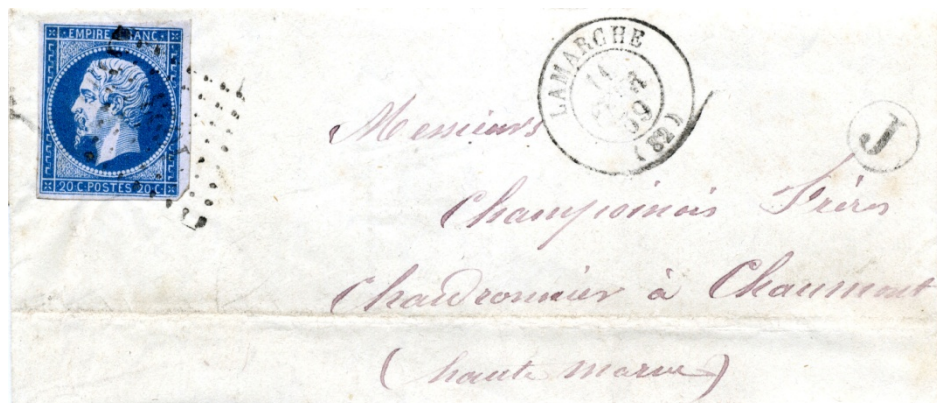 EMPIRE FRANC
20 C·POSTES 20 C
LAMARCHE
59
(82)
J
Messieurs
Champoinois Frères
Chaudronnier à Chaumont
(haute marne)